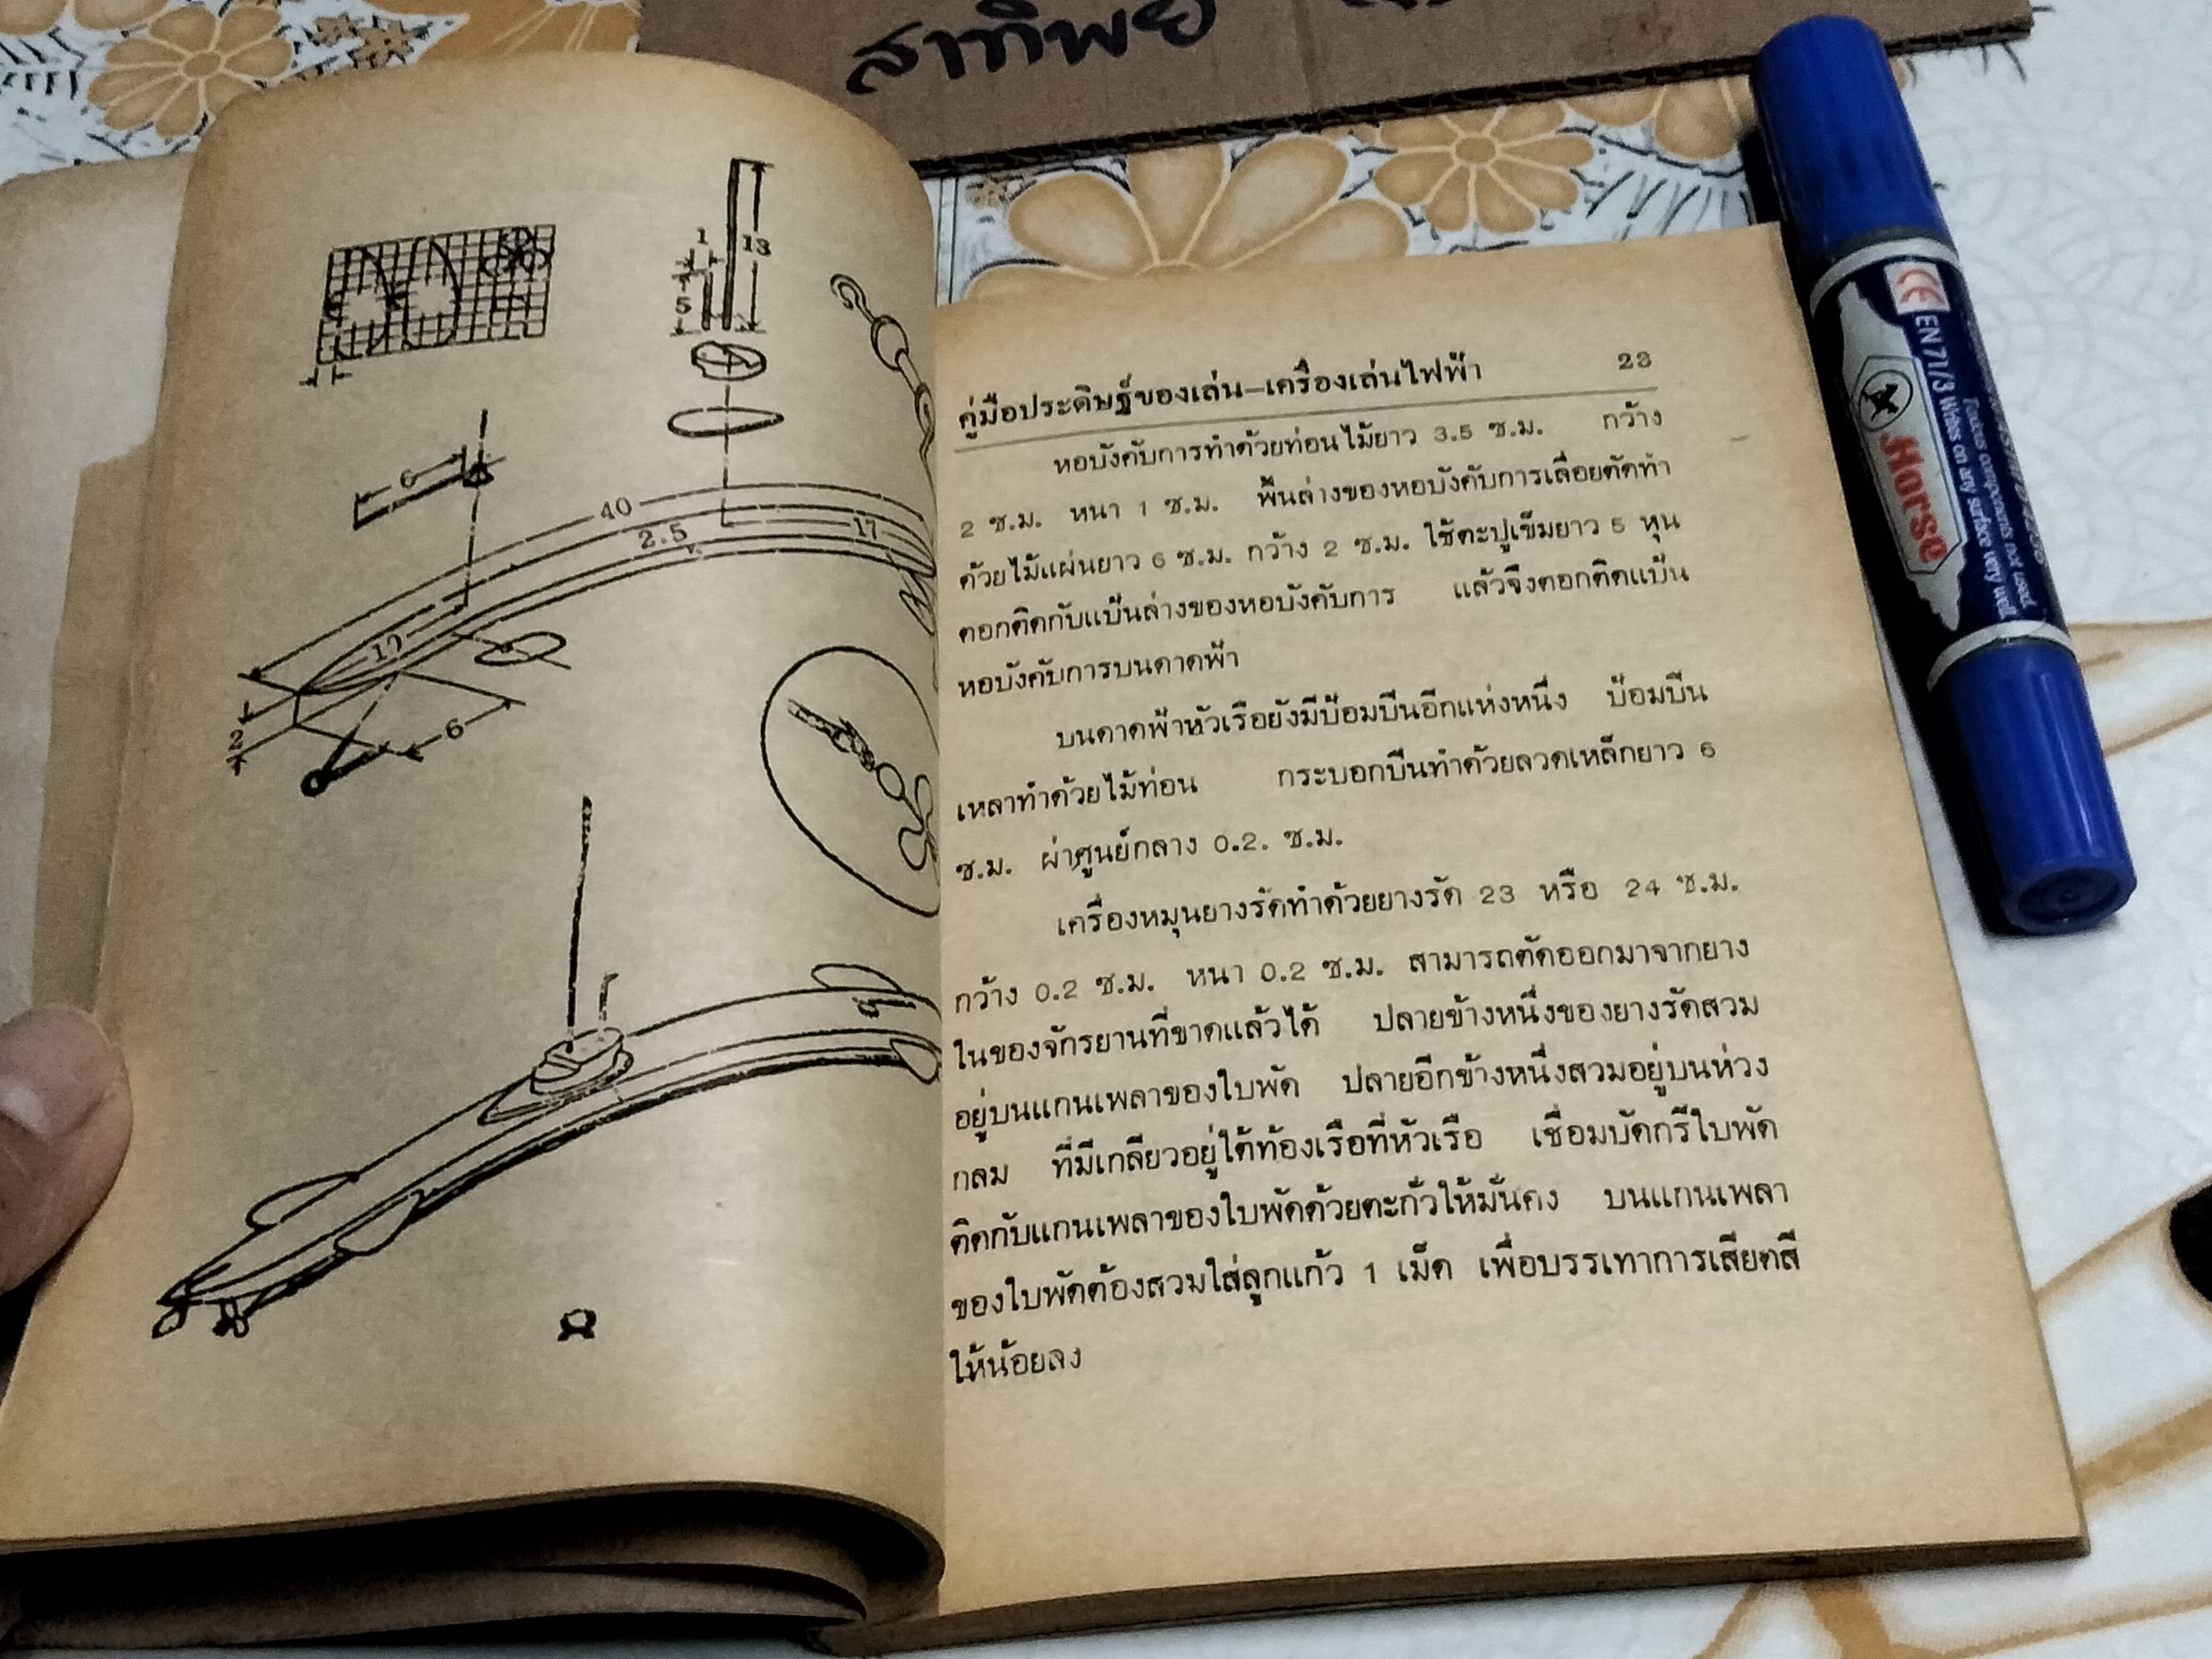 สาทิพย์
1
13
5
6
40
2.5
17
17
2
6
คู่มือประดิษฐ์ของเล่น–เครื่องเล่นไฟฟ้า 23
หอบังคับการทำด้วยท่อนไม้ยาว 3.5 ซ.ม. กว้าง
2 ซ.ม. หนา 1 ซ.ม. พื้นล่างของหอบังคับการเลื่อยตัดทำ
ด้วยไม้แผ่นยาว 6 ซ.ม. กว้าง 2 ซ.ม. ใช้ตะปูเข็มยาว 5 หุน
ตอกติดกับแป้นล่างของหอบังคับการ แล้วจึงตอกติดแป้น
หอบังคับการบนดาดฟ้า
บนดาดฟ้าหัวเรือยังมีป้อมปืนอีกแห่งหนึ่ง ป้อมปืน
เหลาทำด้วยไม้ท่อน กระบอกปืนทำด้วยลวดเหล็กยาว 6
ซ.ม. ผ่าศูนย์กลาง 0.2. ซ.ม.
เครื่องหมุนยางรัดทำด้วยยางรัด 23 หรือ 24 ซ.ม.
กว้าง 0.2 ซ.ม. หนา 0.2 ซ.ม. สามารถตัดออกมาจากยาง
ในของจักรยานที่ขาดแล้วได้ ปลายข้างหนึ่งของยางรัดสวม
อยู่บนแกนเพลาของใบพัด ปลายอีกข้างหนึ่งสวมอยู่บนห่วง
กลม ที่มีเกลียวอยู่ใต้ท้องเรือที่หัวเรือ เชื่อมบัดกรีใบพัด
ติดกับแกนเพลาของใบพัดด้วยตะกั่วให้มั่นคง บนแกนเพลา
ของใบพัดต้องสวมใส่ลูกแก้ว 1 เม็ด เพื่อบรรเทาการเสียดสี
ให้น้อยลง
CE EN 71/3 Writes on any surface very well
Toxious components not used.
Horse